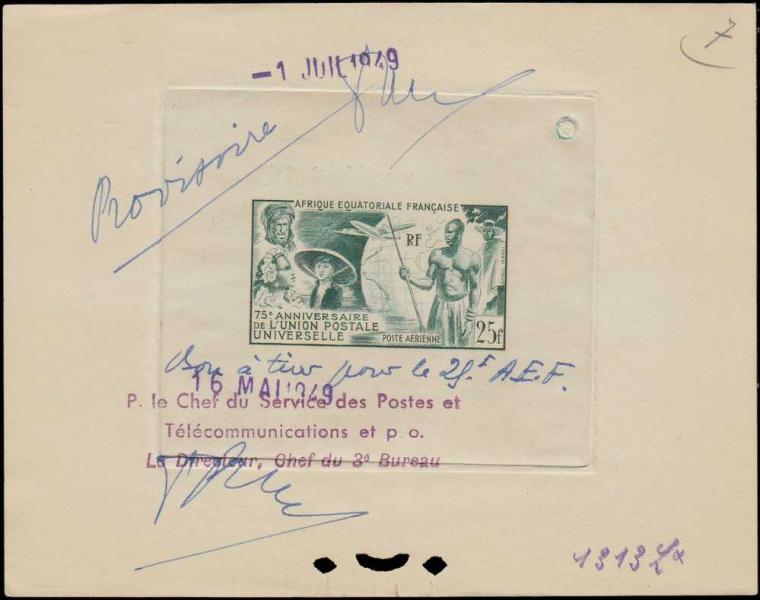 7
-1 JUIL 1949
Provisoire
AFRIQUE EQUATORIALE FRANÇAISE
RF
75e ANNIVERSAIRE
DE L'UNION POSTALE
UNIVERSELLE
POSTE AÉRIENNE
25f
Bon à tirer pour le 25f A.E.F.
16 MAI 1949
P. le Chef du Service des Postes et
Télécommunications et p.o.
Le Directeur, Chef du 3e Bureau
1313